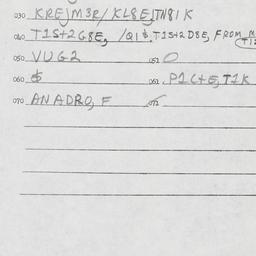 030 KREJM3R/KL8E,TN81K
040 T1S+2G8E, /Q1&.T1S+2D8E, FROM
050 VUG2 051 O
060 & 061 P1C+E,T1K
070 ANADRO, F 071